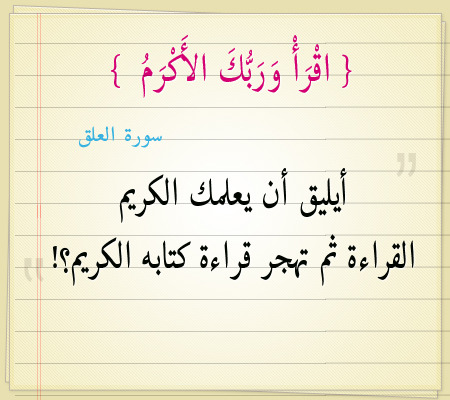 { اقْرَأْ وَرَبُّكَ الأَكْرَمُ }
سورة العلق
أيليق أن يعلمك الكريم
القراءة ثم تهجر قراءة كتابه الكريم؟!